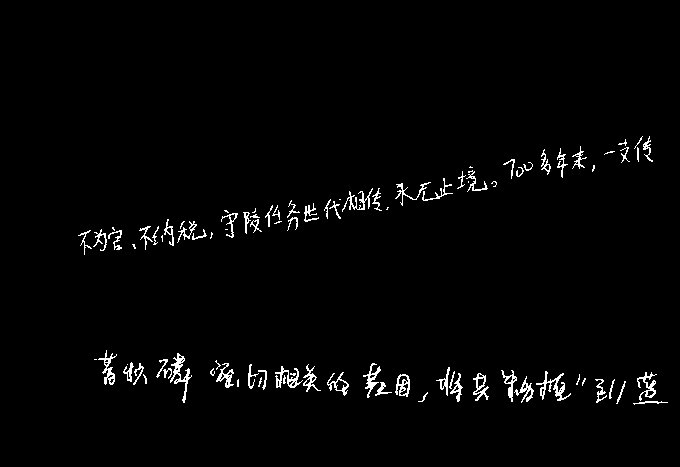 不为官、不纳税,守陵任务世代相传,永无止境。700多年来,一支传
蓄积磷密切相关的基因,将其“移植”到蓝